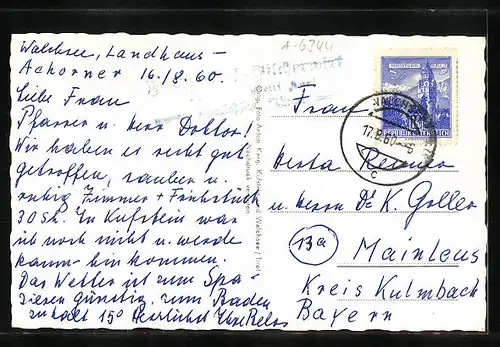 A-6344
Walchsee, Landhaus-
Achorner 16./8. 60.
Liebe Frau
Pfarrer u. Herr Doktor!
Wir haben es recht gut
getroffen, sauber u.
ruhig Zimmer + Frühstück
30 Sh. In Kufstein war
ich noch nicht u. werde
kaum hinkommen.
Das Wetter ist zum Spa-
zieren günstig, zum Baden
zu kalt 15° Herzlichst Ihre
Foto Anton Karg, Kufstein und Walchsee/Tirol
Nachdruck verboten
REPUBLIK ÖSTERREICH
17.8.60
c
Frau
Herta
u. Herrn Dr. K. Goller
13a
Mainleus
Kreis Kulmbach
Bayern